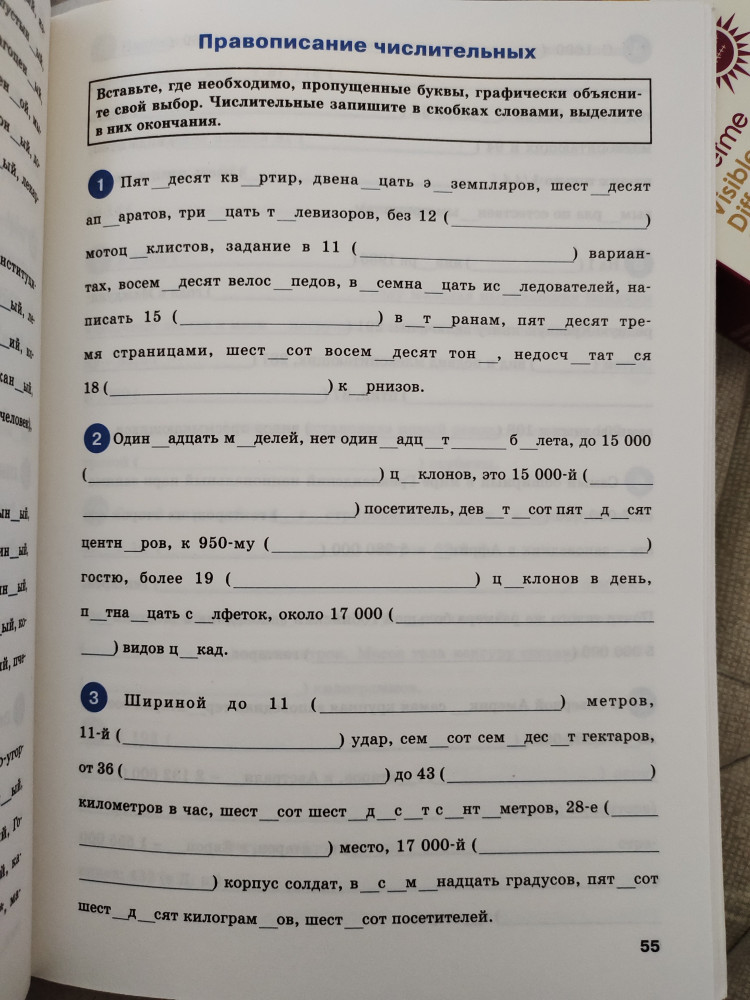 Правописание числительных
Вставьте, где необходимо, пропущенные буквы, графически объясни-
те свой выбор. Числительные запишите в скобках словами, выделите
в них окончания.
1 Пят__десят кв__ртир, двена__цать э__земпляров, шест__десят
ап__аратов, три__цать т__левизоров, без 12 (____________________)
мотоц__клистов, задание в 11 (____________________) вариан-
тах, восем__десят велос__педов, в__семна__цать ис__ледователей, на-
писать 15 (____________________) в__т__ранам, пят__десят тре-
мя страницами, шест__сот восем__десят тон__, недосч__тат__ся
18 (____________________) к__рнизов.
2 Один__адцать м__делей, нет один__адц__т____ б__лета, до 15 000
(____________________) ц__клонов, это 15 000-й (______
____________________) посетитель, дев__т__сот пят__д__сят
центн__ров, к 950-му (____________________)
гостю, более 19 (____________________) ц__клонов в день,
п__тна__цать с__лфеток, около 17 000 (____________________
____) видов ц__кад.
3 Шириной до 11 (____________________) метров,
11-й (____________________) удар, сем__сот сем__дес__т гектаров,
от 36 (____________________) до 43 (____________________)
километров в час, шест__сот шест__д__с__т с__нт__метров, 28-е (____
____________________) место, 17 000-й (____________________
____________________) корпус солдат, в__с__м__надцать градусов, пят__сот
шест__д__сят килограм__ов, шест__сот посетителей.
55
eime
Visible
Diffe